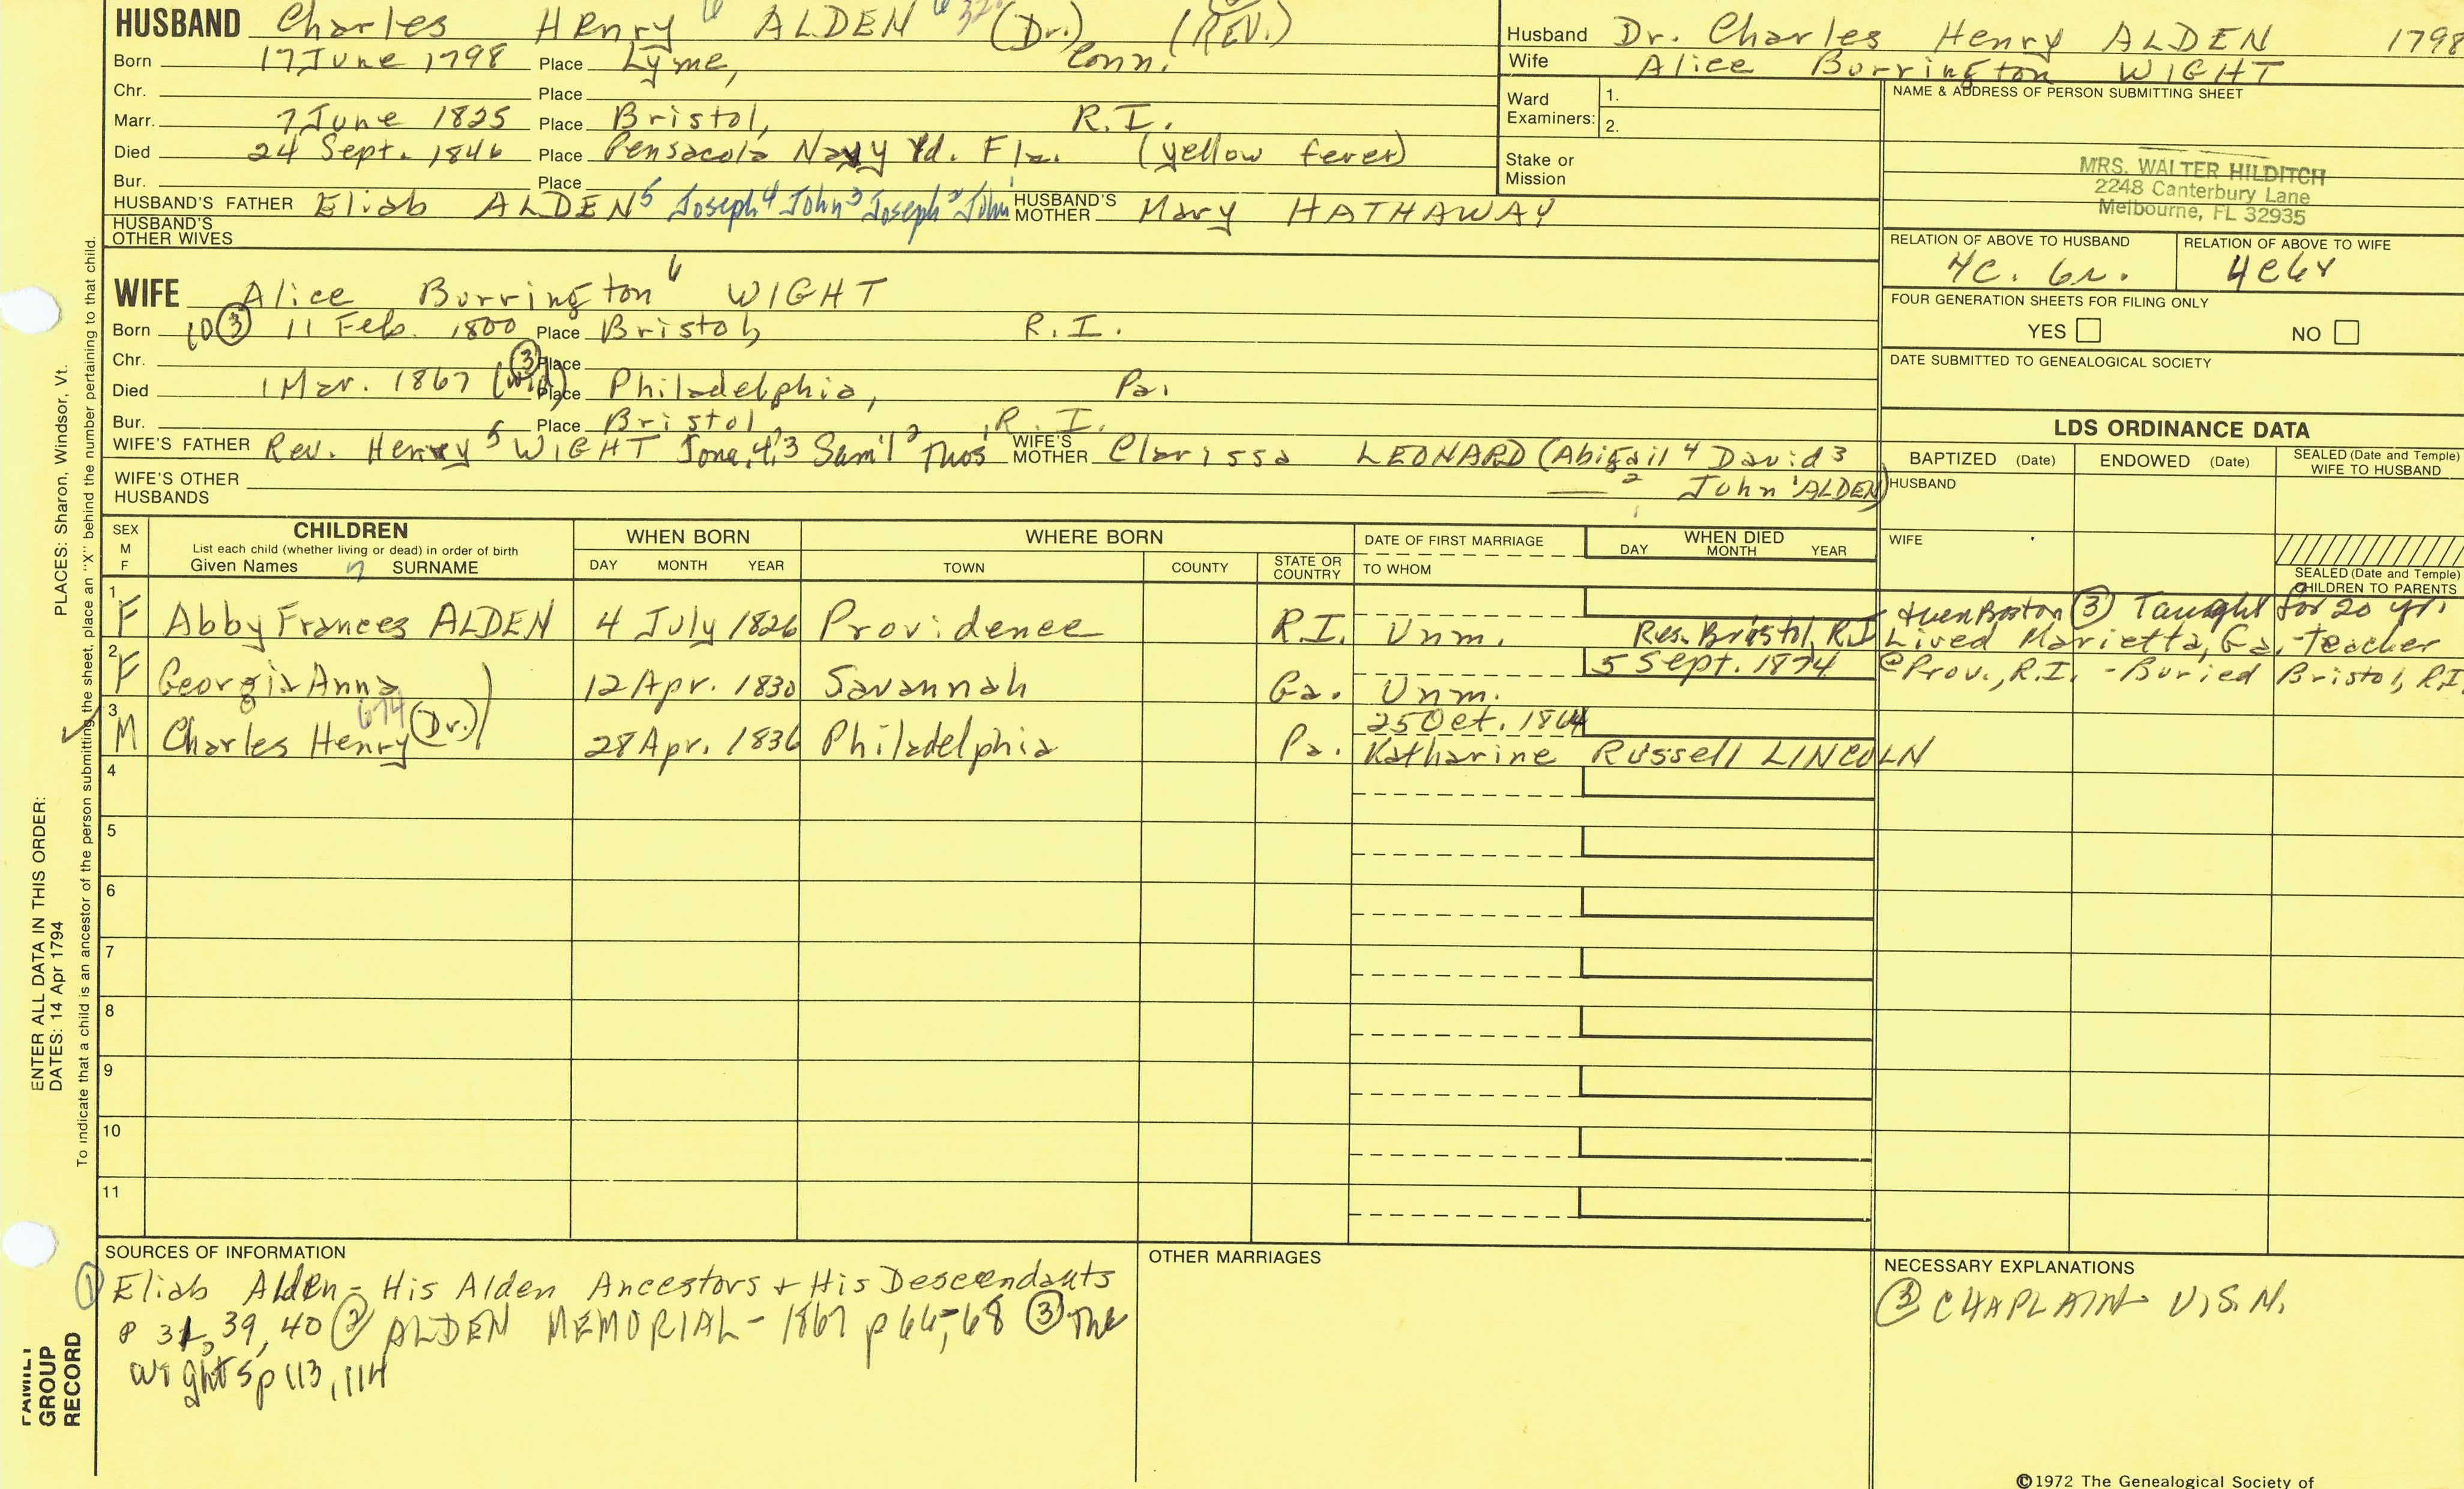 HUSBAND Charles Henry 6 ALDEN (Dr.) (REV.)
Born 17 June 1798 Place Lyme, Conn.
Chr. Place
Marr. 7 June 1825 Place Bristol, R.I.
Died 24 Sept. 1846 Place Pensacola Navy Yd. Fla. (yellow fever)
Bur. Place
HUSBAND'S FATHER Eliab ALDEN 5 Joseph 4 John 3 Joseph 2 John 1 HUSBAND'S MOTHER Mary HATHAWAY
HUSBAND'S OTHER WIVES
Husband Dr. Charles Henry ALDEN 1798
Wife Alice Borrington WIGHT
Ward Examiners: 1.
2.
Stake or Mission
NAME & ADDRESS OF PERSON SUBMITTING SHEET
MRS. WALTER HILDITCH
2248 Canterbury Lane
Melbourne, FL 32935
RELATION OF ABOVE TO HUSBAND RELATION OF ABOVE TO WIFE
4C. 6r. 4C6r
FOUR GENERATION SHEETS FOR FILING ONLY
YES NO
DATE SUBMITTED TO GENEALOGICAL SOCIETY
WIFE Alice Borrington 6 WIGHT
Born 10 (3) 11 Feb. 1800 Place Bristol, R.I.
Chr. (3) Place
Died 1 Mar. 1867 (wid) Place Philadelphia, Pa.
Bur. Place Bristol, R.I.
WIFE'S FATHER Rev. Henry 5 WIGHT Jona. 4,3 Sam'l 2 Thos 1 WIFE'S MOTHER Clarissa LEONARD (Abigail 4 David 3
2 John 1 ALDEN)
WIFE'S OTHER HUSBANDS
LDS ORDINANCE DATA
BAPTIZED (Date) ENDOWED (Date) SEALED (Date and Temple) WIFE TO HUSBAND
HUSBAND
WIFE
SEALED (Date and Temple) CHILDREN TO PARENTS
SEX M F CHILDREN List each child (whether living or dead) in order of birth Given Names 7 SURNAME
WHEN BORN DAY MONTH YEAR
WHERE BORN TOWN COUNTY STATE OR COUNTRY
DATE OF FIRST MARRIAGE TO WHOM
WHEN DIED DAY MONTH YEAR
1 F Abby Frances ALDEN 4 July 1826 Providence R.I. Unm. Res. Bristol, R.I. Boston (3) Taught for 20 yr.
Lived Marietta, Ga. - teacher
2 F Georgia Anna 12 Apr. 1830 Savannah Ga. Unm. 5 Sept. 1874 @ Prov., R.I. - Buried Bristol, R.I.
3 M Charles Henry 674 (Dr.) 28 Apr. 1836 Philadelphia Pa. 25 Oct. 1864
Katharine Russell LINCOLN
4
5
6
7
8
9
10
11
SOURCES OF INFORMATION
(1) Eliab Alden - His Alden Ancestors + His Descendants
p 31, 39, 40 (2) ALDEN MEMORIAL - 1867 p 66-68 (3) The
Wights p 113, 114
OTHER MARRIAGES
NECESSARY EXPLANATIONS
(3) CHAPLAIN U.S.N.
©1972 The Genealogical Society of
PLACES: Sharon, Windsor, Vt.
To indicate that a child is an ancestor of the person submitting the sheet, place an "X" behind the number pertaining to that child.
ENTER ALL DATA IN THIS ORDER:
DATES: 14 Apr 1794
FAMILY
GROUP
RECORD